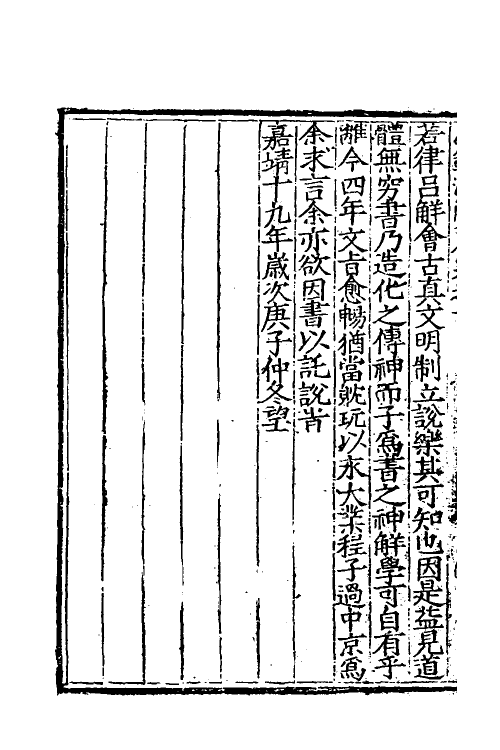 若律吕觧會古真文明制立説樂其可知也因是益見道
體無穷書乃造化之傳神而子為書之神解學可自有乎
離今四年文㫖愈暢猶當躭玩以求大業程子過中京為
余求言余亦欲因書以託説㫖
嘉靖十九年歳次庚子仲冬望